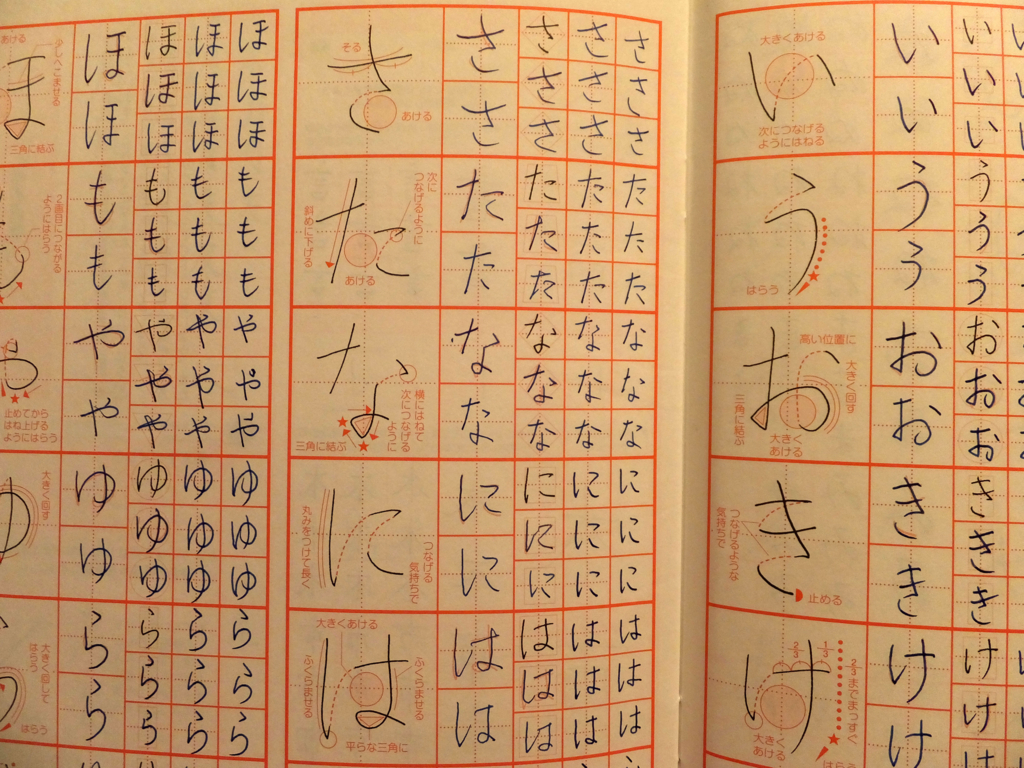 い
大きくあける
次につなげる
ようにはねる
い い い い
い い い
う
はらう
う う う
う う う
お
高い位置に
大きく回す
三角に結ぶ
大きく
あける
お お お
お お お
き
つなげるような
気持ちで
止める
き き き
き き き
け
2/3
1/3
2/3までまっすぐ
大きく
あける
はらう
け け け
け け
さ
そる
あける
さ さ さ さ
さ さ さ
さ さ さ さ
た
次に
つなげるように
斜めに下げる
あける
た た た た
た た た
た た た た
な
横にはねて
次につなげる
ように
三角に結ぶ
な な な な
な な な
な な な な
に
丸みをつけて長く
つなげる
気持ちで
に に に に
に に に
に に に に
は
大きくあける
ふくらませる
ふくらませる
平らな三角に
は は は は
は は は
は は は は
ほ
あける
少しへこませる
三角に結ぶ
ほ ほ ほ ほ
ほ ほ ほ
ほ ほ ほ ほ
も
2画目につなげる
ようにはらう
も も も も
も も も
も も も も
や
止めてから
はね上げる
ようにはらう
や や や や
や や や
や や や や
ゆ
大きく回す
ゆ ゆ ゆ ゆ
ゆ ゆ ゆ
ゆ ゆ ゆ ゆ
ら
大きく回して
はらう
はらう
ら ら ら ら
ら ら ら
ら ら ら ら